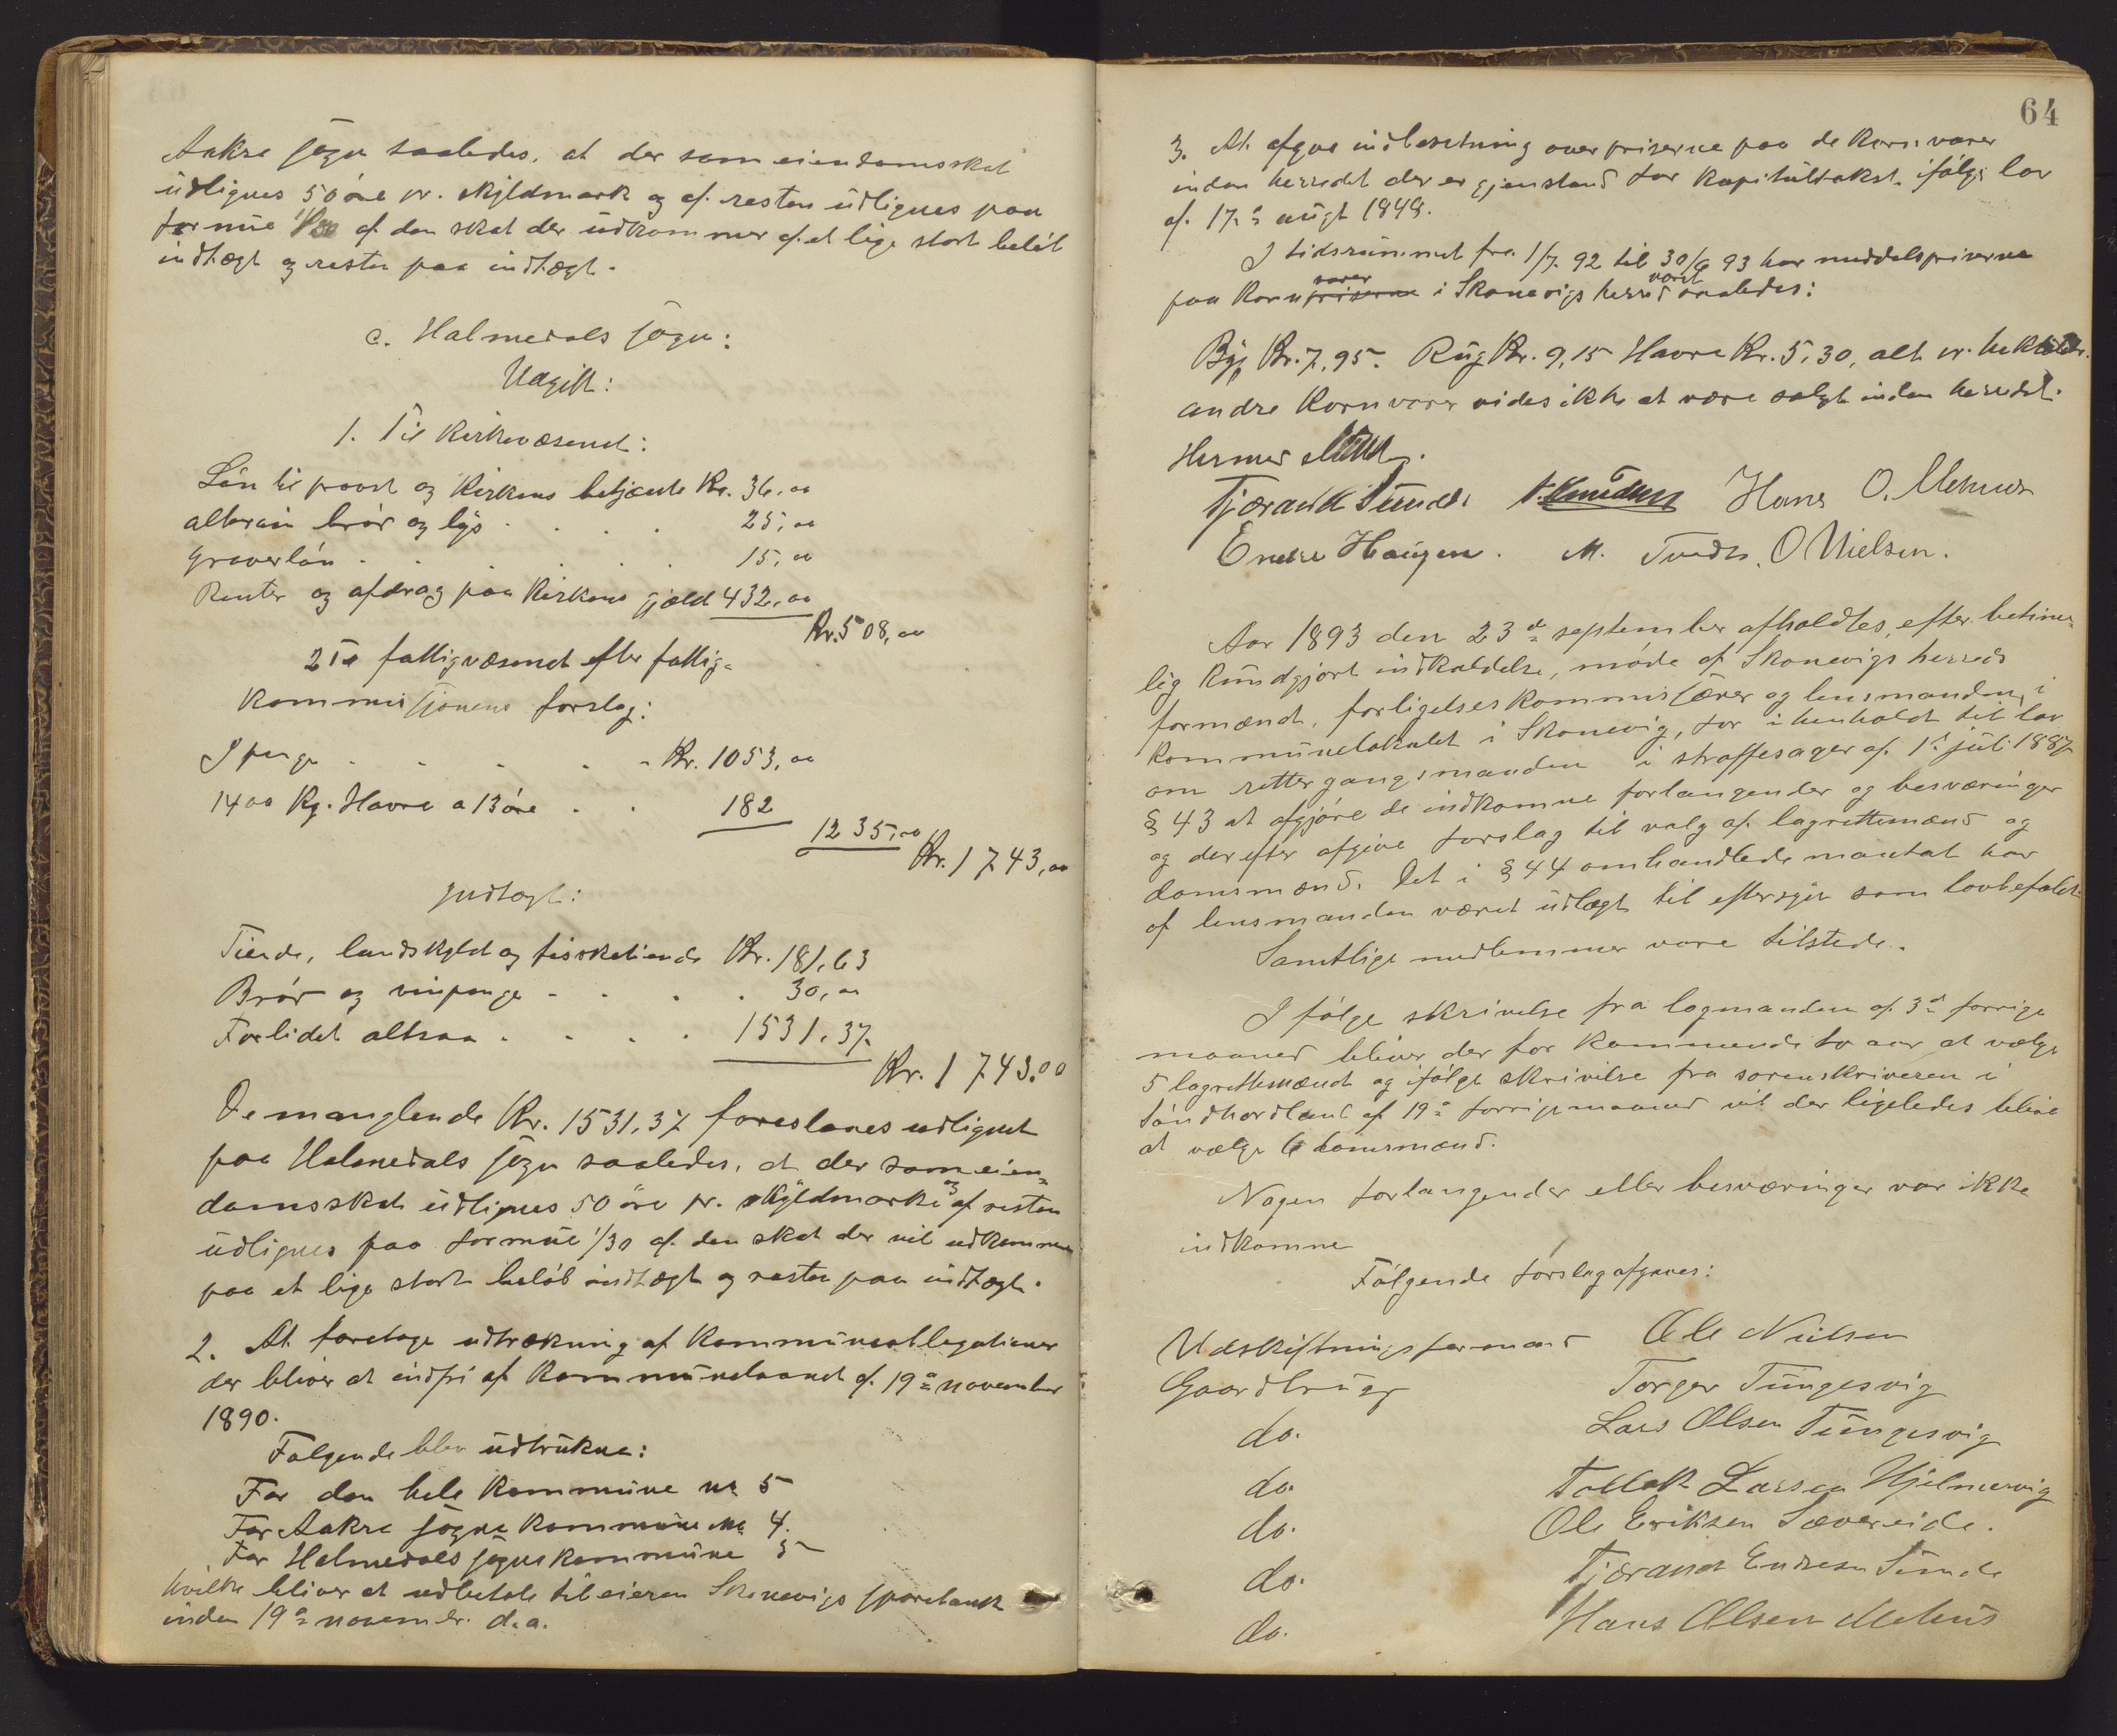 Aakre sogn saaledes, at der som eiendomsskat
udlignes 50 øre pr. skyldmark og af resten udlignes paa
formue 1/30 af den skat der udkommer af et lige stort beløb
indtægt og resten paa indtægt.
c. Halmedals sogn:
Udgift:
1. Til kirkevæsenet:
Løn til provst og kirkens betjente Kr. 36,00
altervin brød og lys . . . . 25,00
Graverløn . . . . . 15,00
Renter og afdrag paa Kirkens gjæld 432,00
Kr. 508,00
2 Til fattigvæsenet efter fattig-
kommissjonens forslag:
I penge . . . . . Kr. 1053,00
1400 Kg. Havre a 13 øre . . 182
1235,00
Kr. 1743,00
Indtægt:
Tiende, landskyld og fisketiende Kr. 181,63
Brød og vinpenge . . . . 30,00
Forlidet altsaa . . . . 1531,37.
Kr. 1743.00
De manglende Kr. 1531,37 foreslaaes udlignet
paa Halmedals sogn saaledes, at der som eien-
domsskat udlignes 50 øre pr. skyldmark og af resten
udlignes paa formue 1/30 af den skat der vil udkomme
paa et lige stort beløb indtægt og resten paa indtægt.
2. At foretage udtrækning af Kommuneobligationer
der bliver at indfri af kommunelaanet af 19de november
1890.
Følgende blev udtrukne:
For den hele Kommune no 5
For Aakre sogns kommune no 4.
For Halmedals sognskommune 5
hvilke bliver at udbetale til eieren Skonevigs sparebank
inden 19de novembr. d.a.
64
3. At afgive indberetning over priserne paa de kornvarer
inden herredet der er gjenstand for kapitultakst ifølge lov
af 17de augt 1848.
I tidsrummet fra 1/7 92 til 30/6 93 har middelpriserne
paa kornpriserne varer i Skonevigs herred været saaledes:
Byg Kr. 7,95. Rug Kr. 9,15 Havre Kr. 5,30, alt pr. hektoliter.
andre kornvarer vides ikke at være solgt inden herredet.
Hermed sluttet.
Tjærand Sunde A. Knudsen Hans O. Mehus
Endre Haugen. M. Tvedte. O Nielsen.
Aar 1893 den 23de september afholdtes, efter betime-
lig kundgjort indkaldelse, møde af Skonevigs herreds
formænd, forligelseskommissærer og lensmanden, i
kommunelokalet i Skonevig, for i henhold til lov
om rettergangsmaaden i straffesager af 1ste juli 1887
§ 43 at afgjøre de indkomne forlangender og besværinger
og derefter afgive forslag til valg af lagrettemænd og
domsmænd. Det i § 44 omhandlede mantal har
af lensmanden været udlagt til eftersyn som lovbefalet.
Samtlige medlemmer vare tilstede.
I følge skrivelse fra lagmanden af 3de forrige
maaned bliver der for kommende to aar at vælge
5 lagrettemænd og ifølge skrivelse fra sorenskriveren i
Søndhordland af 19de forrige maaned vil der ligeledes blive
at vælge 6 domsmænd.
Nogen forlangender eller besværinger var ikke
indkomne
Følgende forslag afgaves:
Udskiftningsformand Ole Nielsen
Gaardbruger Torger Tungesvig
do. Lars Olsen Tungesvig
do. Tollak Larsen Hjelmervig
do. Ole Eriksen Sævereide.
do. Tjærand Endresen Sunde
do. Hans Olsen Mehus